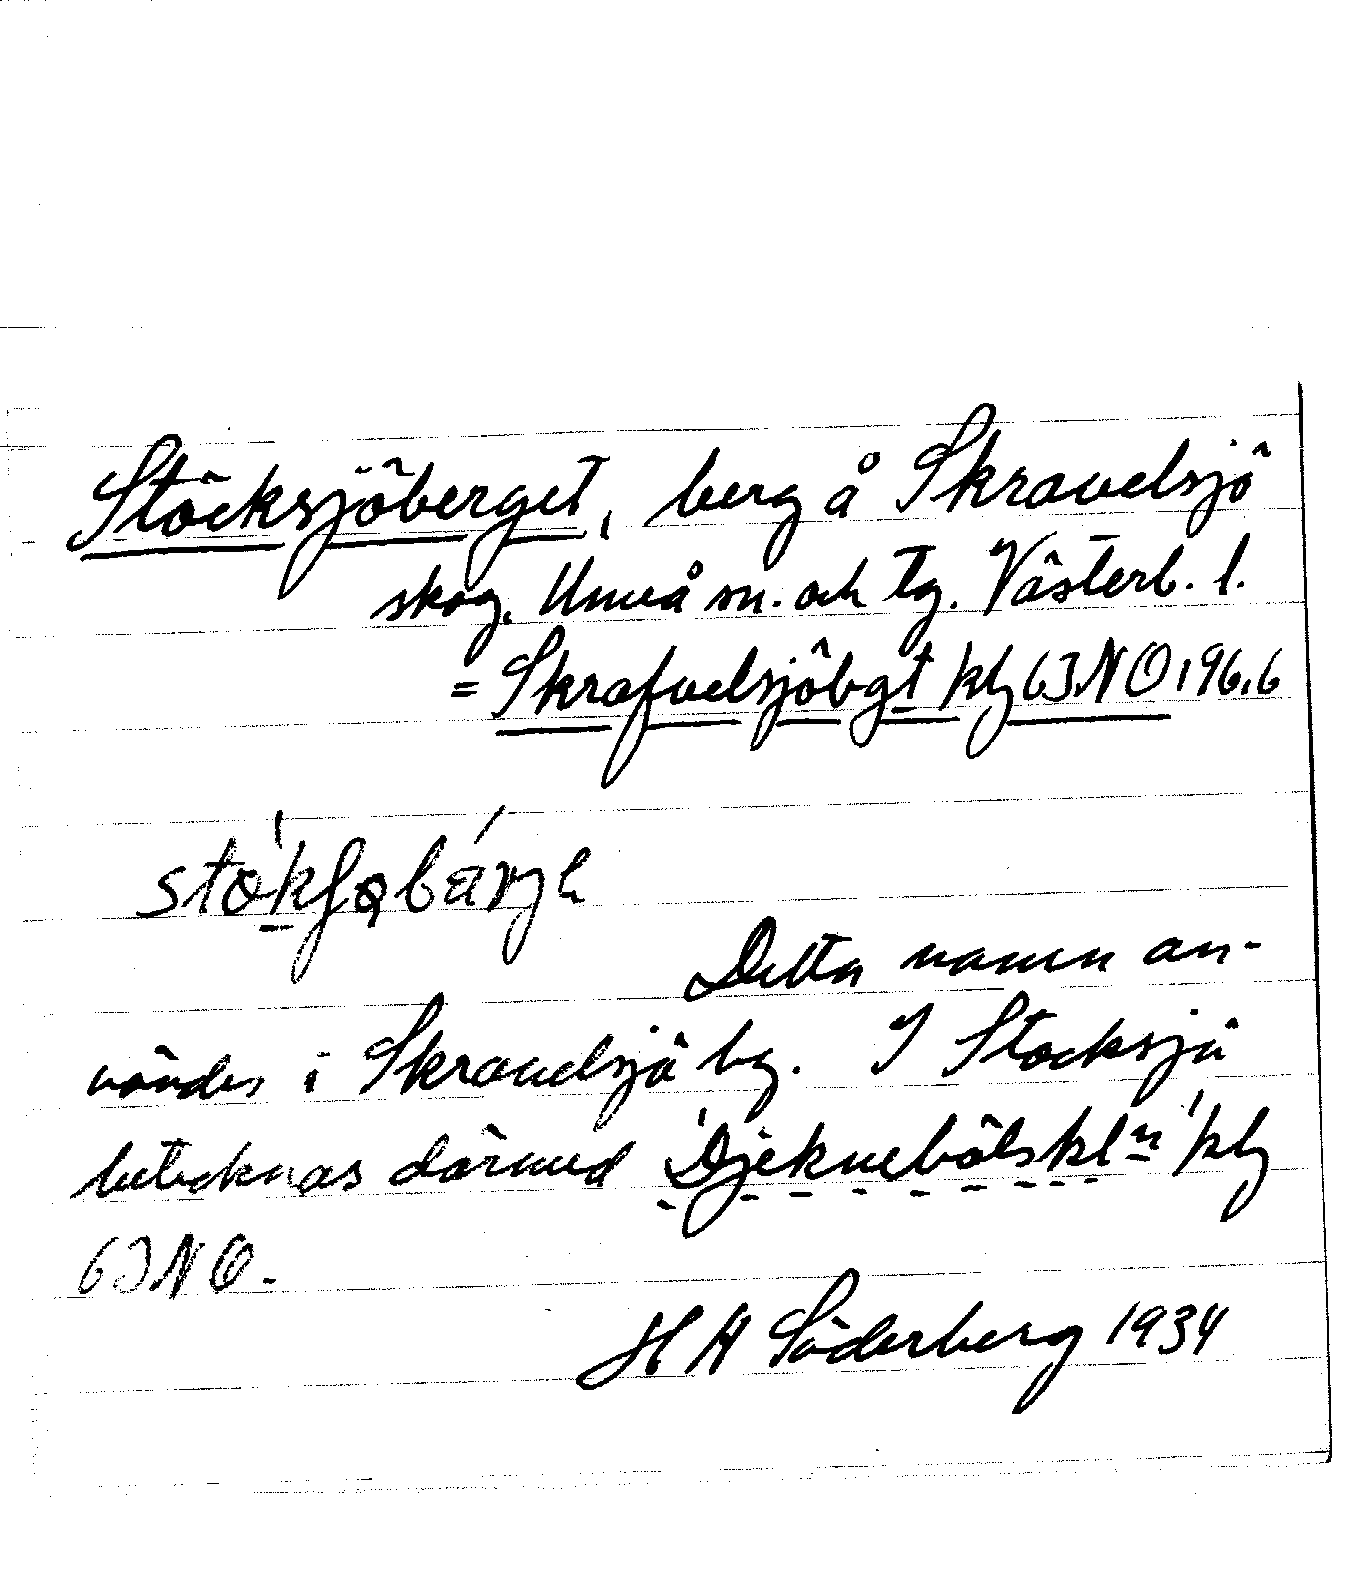 Stöcksjöberget, berg å Skravelsjö
skog, Umeå sn. och tg. Västerb. l.
= Skrafvelsjöbgt klg 63NO 196,6
Detta namn an-
vändes i Skravelsjö by. I Stöcksjö
betecknas därmed 'Djeknebölskln' klg
63NO.
H H Söderberg 1934